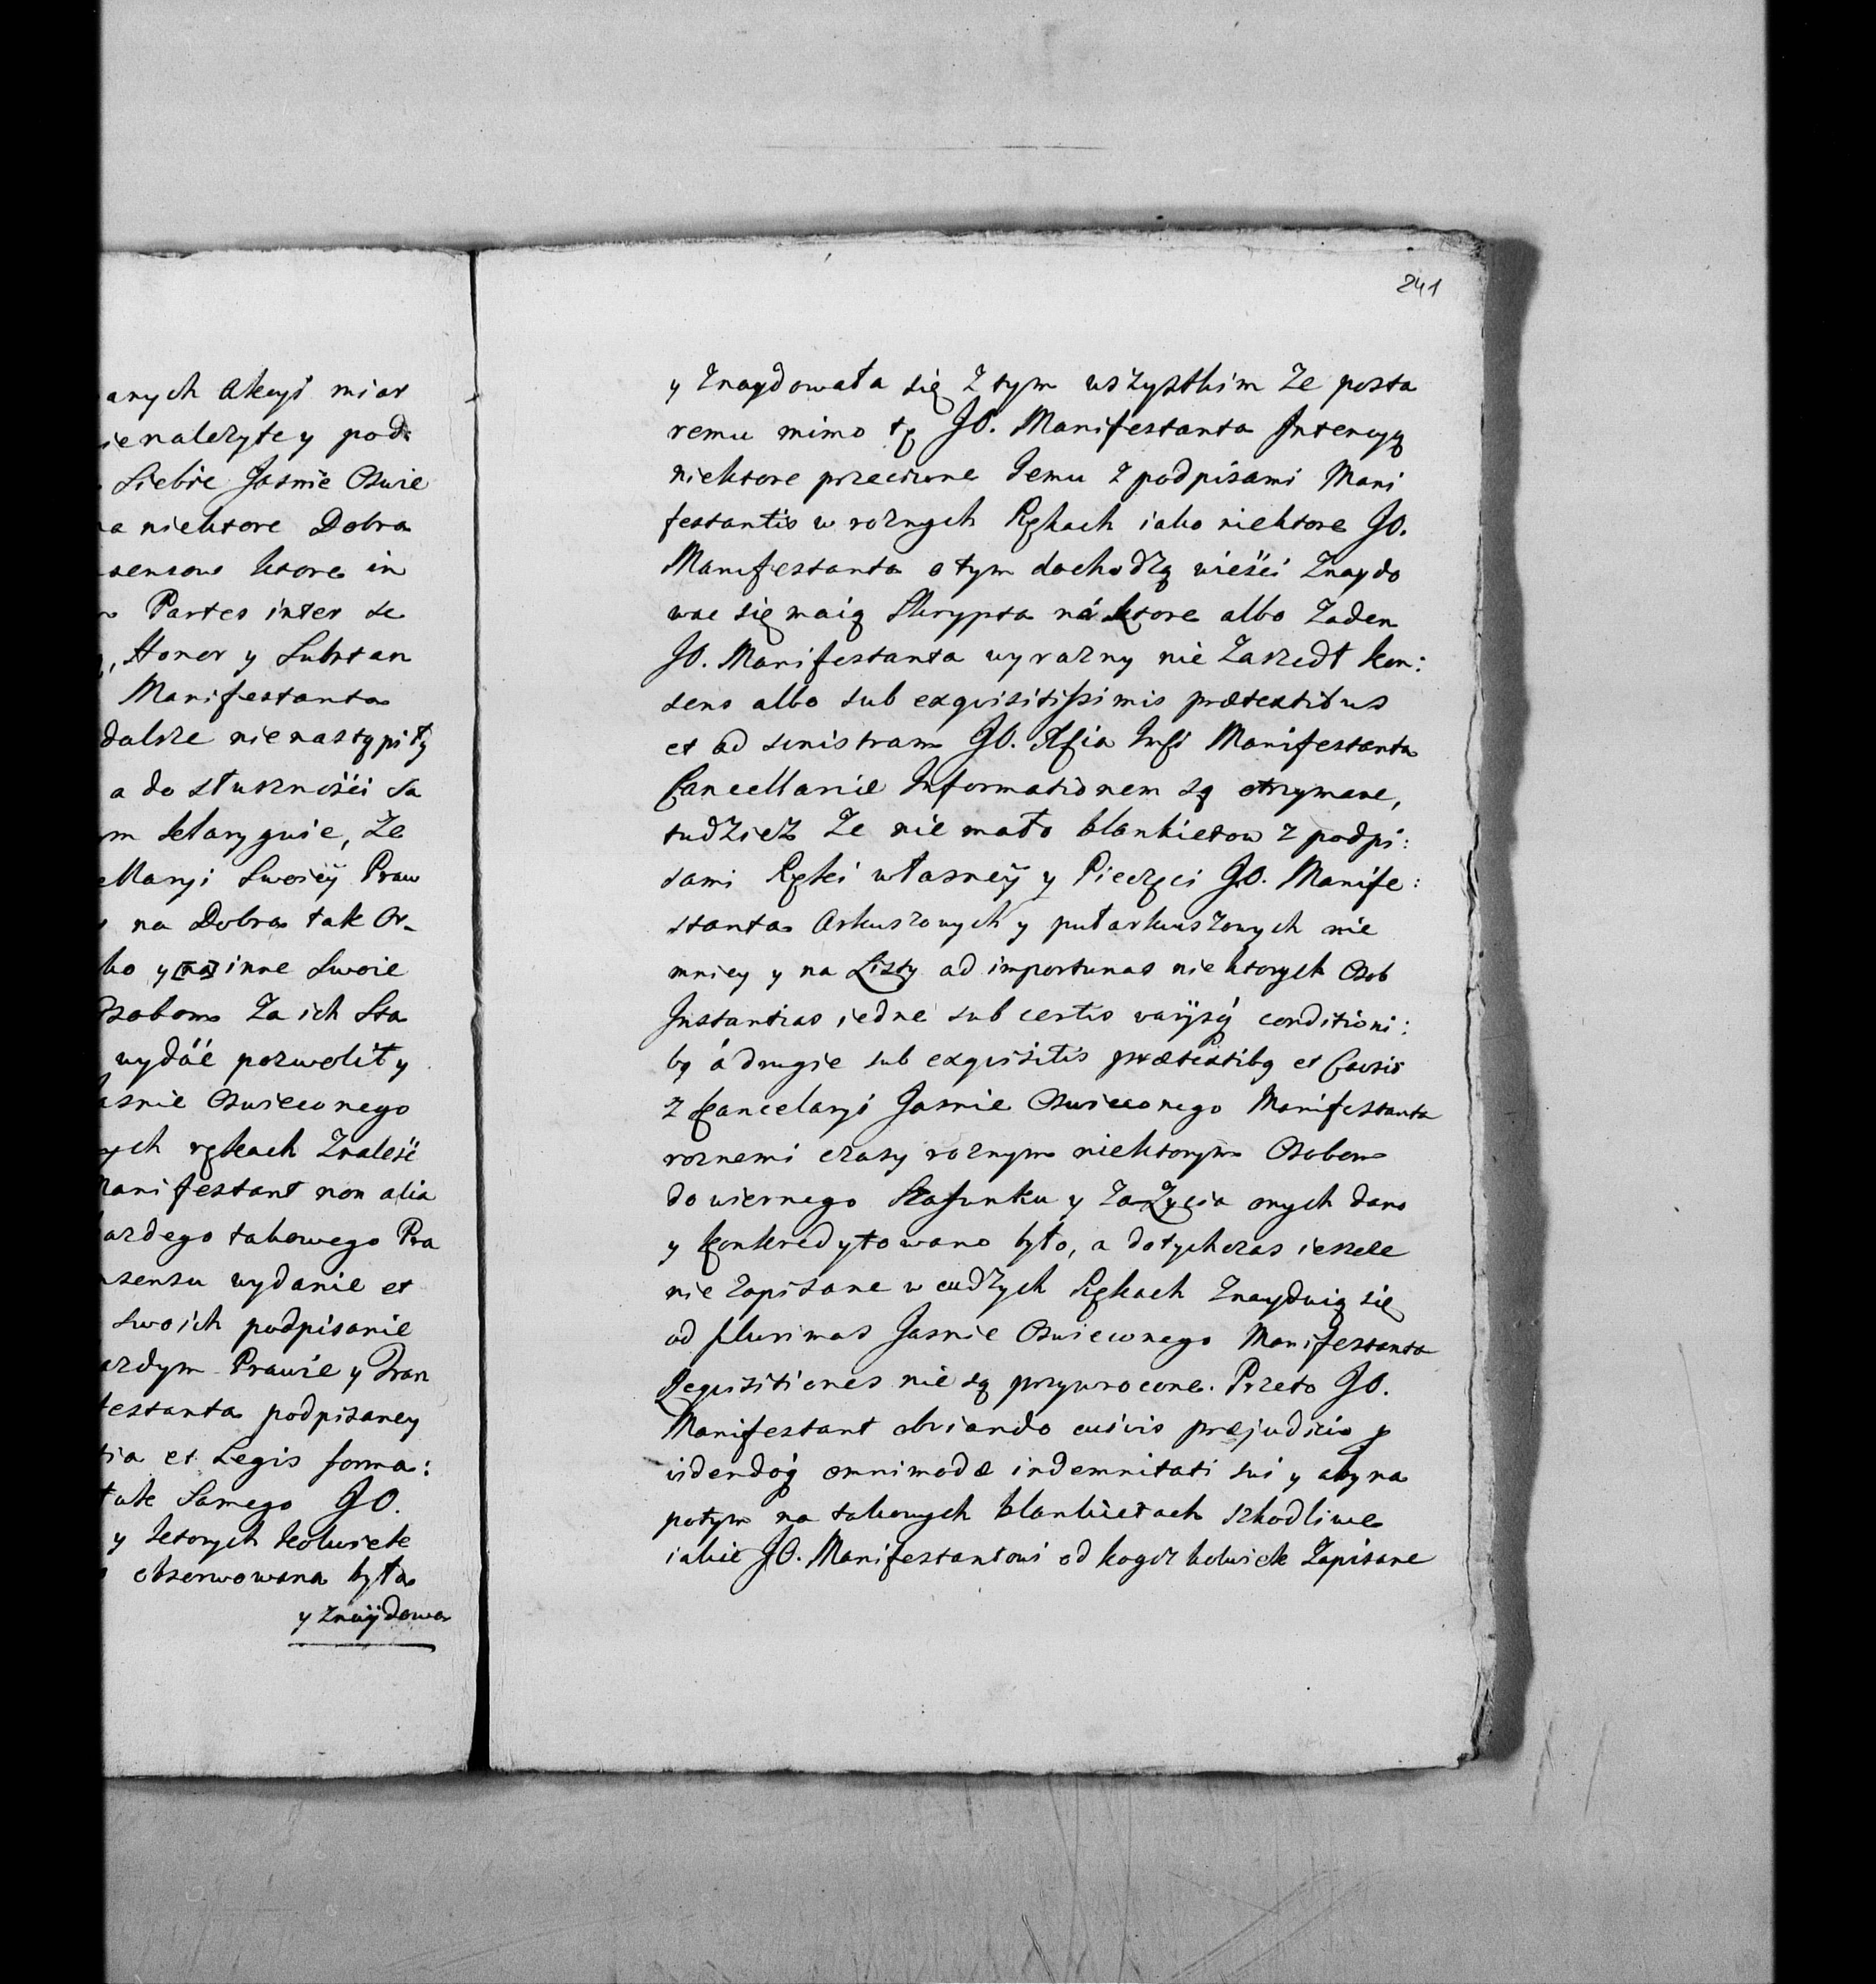 anych Akcyi miar
ienależytey pod:
Siebie Jasnie Oswie
a niektore Dobra
sensow ktore in
Partes inter se
Honor y Substan
Manifestanta
dalsze nienastąpiły
a do słuszności sa
m deklaryguie, Że
ellaryi Swoiey Praw
na Dobra tak Or-
ko y [na] inne Swoie
Osobom Za ich Sta
wydáć pozwolił y
asnie Oswieconego
ych rękach Znaleść
Manifestant non alia
ażdego takowego Pra
nsensu wydanie et
swoich podpisanie
ażdym Prawie y Tran
festanta podpisaney
tia et Legis forma:
tak Samego JO.
y ktorych kolwiek
obserwowana była
y znaÿdowa
241
y Znaydowała się Z tym wszystkim Ze posta
remu mimo tę JO. Manifestanta Intencyą
niektore przeciwne temu z podpisami Mani
festantis w rożnych Rękach iako niektore JO.
Manifestanta o tym dochodzą wieści Znaydo
wac się maią Skrypta ná ktore albo Zaden
JO. Manifestanta wyrazny nie Zaszedł kon:
sens albo sub exquisitissimis prætextibus
et ad sinistram JO. Manifestanta
Cancellariæ Informationem są otrzymane,
tudzież Ze nie mało blankietow z podpi:
sami Ręki własneÿ y Pieczęci JO. Manife:
stanta Arkuszowych y pułarkuszowych nie
mniey y na Listy ad importunas niektorych Osob
Instantias iedne sub certis varÿsq conditioni:
bq á drugie sub exquisitis prætextibq et Causis
z Kancelaryi Jasnie Oswieconego Manifestanta
roznemi czasy roznym niektorym Osobom
do wiernego Szafunku y Zażycia onych dano
y konkredytowano było, a dotychczas ieszcze
nie zapisane w cudzych Rękach Znayduią się
ad plurimas Jasnie Oswieconego Manifestanta
Requisitiones nie są przywrocone. Przeto JO.
Manifestant obviando cuivis præjudicio p
videndoq omnimodæ indemnitati sui y aby na
potym na takowych blankietach szkodliwe
iakie JO. Manifestantowi od kogoż kolwiek Zapisane